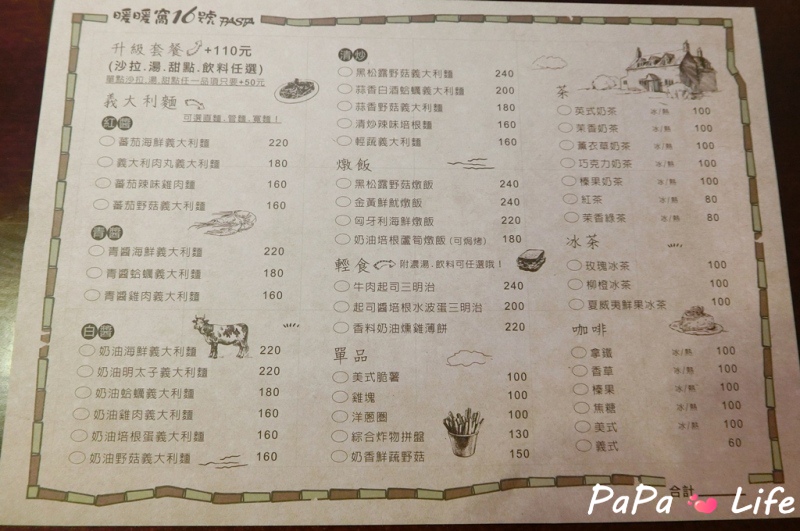 暖暖窩16號 PASTA
升級套餐 +110元
(沙拉.湯.甜點.飲料任選)
單點沙拉.湯.甜點任一品項只要+50元
義大利麵 可選直麵.管麵.寬麵！
紅醬
番茄海鮮義大利麵 220
義大利肉丸義大利麵 180
番茄辣味雞肉麵 160
番茄野菇義大利麵 160
青醬
青醬海鮮義大利麵 220
青醬蛤蠣義大利麵 180
青醬雞肉義大利麵 160
白醬
奶油海鮮義大利麵 220
奶油明太子義大利麵 220
奶油蛤蠣義大利麵 180
奶油雞肉義大利麵 160
奶油培根蛋義大利麵 160
奶油野菇義大利麵 160
清炒
黑松露野菇義大利麵 240
蒜香白酒蛤蠣義大利麵 200
蒜香野菇義大利麵 180
清炒辣味培根麵 160
輕蔬義大利麵 160
燉飯
黑松露野菇燉飯 240
金黃鮮魷燉飯 240
匈牙利海鮮燉飯 220
奶油培根蘆筍燉飯 (可焗烤) 180
輕食 附濃湯.飲料可任選哦！
牛肉起司三明治 240
起司醬培根水波蛋三明治 200
香料奶油燻雞薄餅 220
單品
美式脆薯 100
雞塊 100
洋蔥圈 100
綜合炸物拼盤 130
奶香鮮蔬野菇 150
茶
英式奶茶 冰/熱 100
茉香奶茶 冰/熱 100
薰衣草奶茶 冰/熱 100
巧克力奶茶 冰/熱 100
榛果奶茶 冰/熱 100
紅茶 冰/熱 80
茉香綠茶 冰/熱 80
冰茶
玫瑰冰茶 100
柳橙冰茶 100
夏威夷鮮果冰茶 100
咖啡
拿鐵 冰/熱 100
香草 冰/熱 100
榛果 冰/熱 100
焦糖 冰/熱 100
美式 冰/熱 100
義式 60
合計
PaPa Life